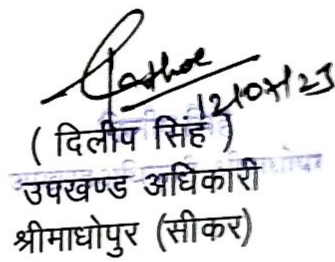 12/07/23
( दिलीप सिंह )
उपखण्ड अधिकारी
श्रीमाधोपुर (सीकर)